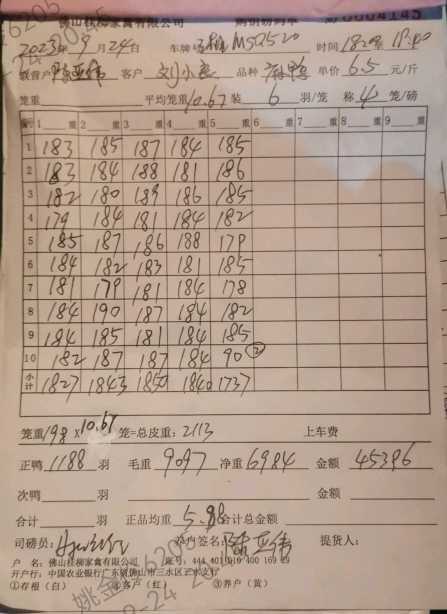 佛山桂柳家禽有限公司 购销磅码单 № 0004145
2023年 9月 24日 车牌 M5Q520 时间 18:00
联营户 陈亚伟 客户 刘小良 品种 单价 6.5 元/斤
笼重 平均笼重 10.67 装 6 羽/笼 称 4 笼/磅
1 重 2 重 3 重 4 重 5 重 6 重 7 重 8 重 9 重
1 183 185 187 184 185
2 183 184 188 181 186
3 182 180 189 186 185
4 179 184 181 184 182
5 185 187 186 188 179
6 184 182 183 181 185
7 181 179 181 184 178
8 184 190 187 184 182
9 184 185 181 184 185
10 182 187 187 184 90 ②
小计 1827 1843 1850 1840 1737
笼重 198 × 10.67 笼=总皮重: 2113 上车费
正鸭 1188 羽 毛重 9097 净重 6984 金额 45396
次鸭 羽 金额
合计 羽 正品均重 5.88 合计总金额
司磅员: 签名: 陈亚伟 提货人:
户 名: 佛山桂柳家禽有限公司
开户行: 中国农业银行广东佛山市三水区云东支行
①存根(白) ②客户(红) ③养户(黄)